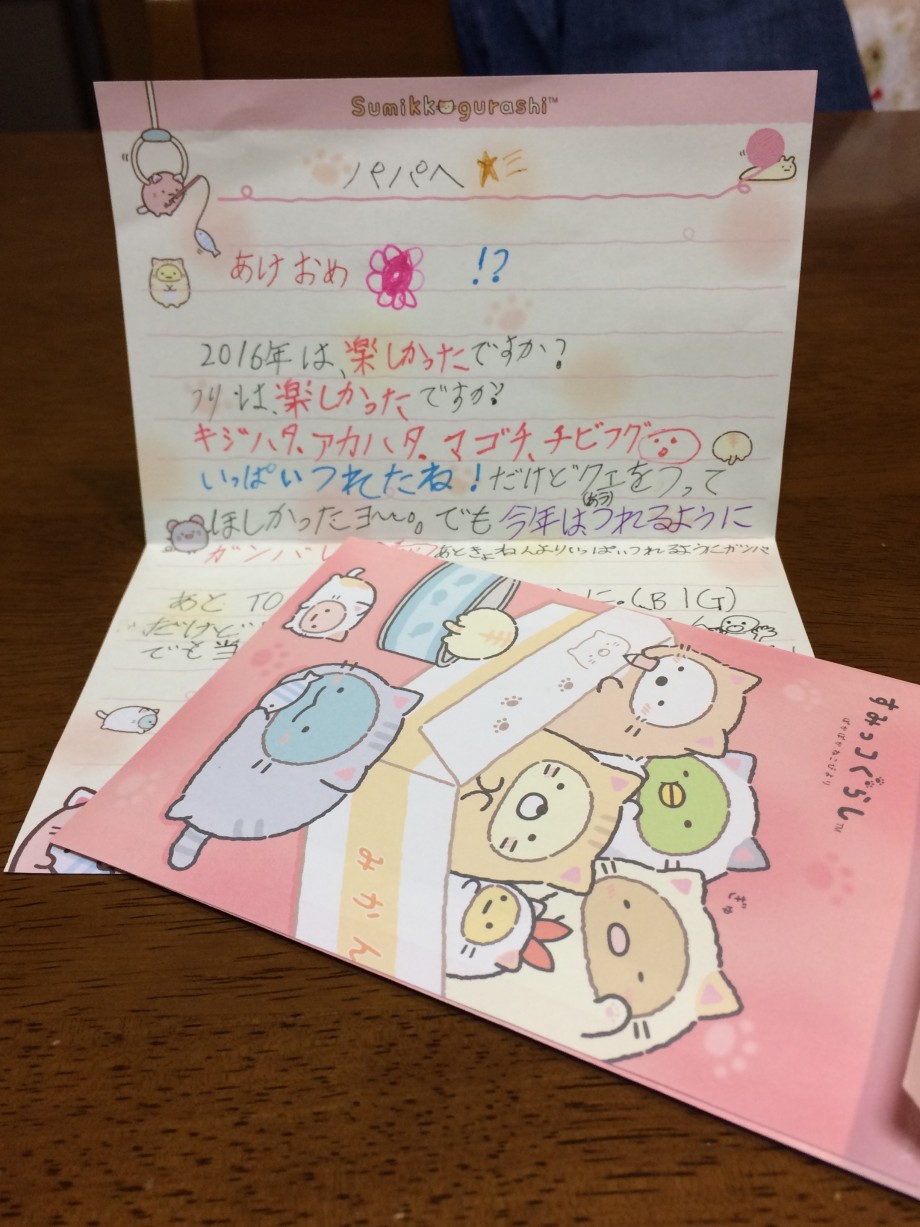 Sumikkogurashi™
パパへ
あけおめ !?
2016年は、楽しかったですか?
つりは、楽しかったですか?
キジハタ、アカハタ、マゴチ、チビフグ
いっぱいつれたね!だけどクエをつって
ほしかったヨ〜。でも今年は、つれるように
ガンバレ
あときょねんよりいっぱいつれるようにガンバ
あと TO
に。(BIG)
だけど
でも当
すみっコぐらし™
みかん
ぎゅ